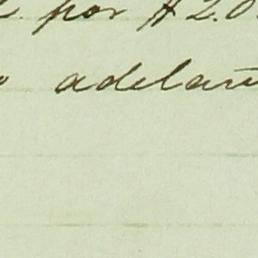 por $2.0
adelan